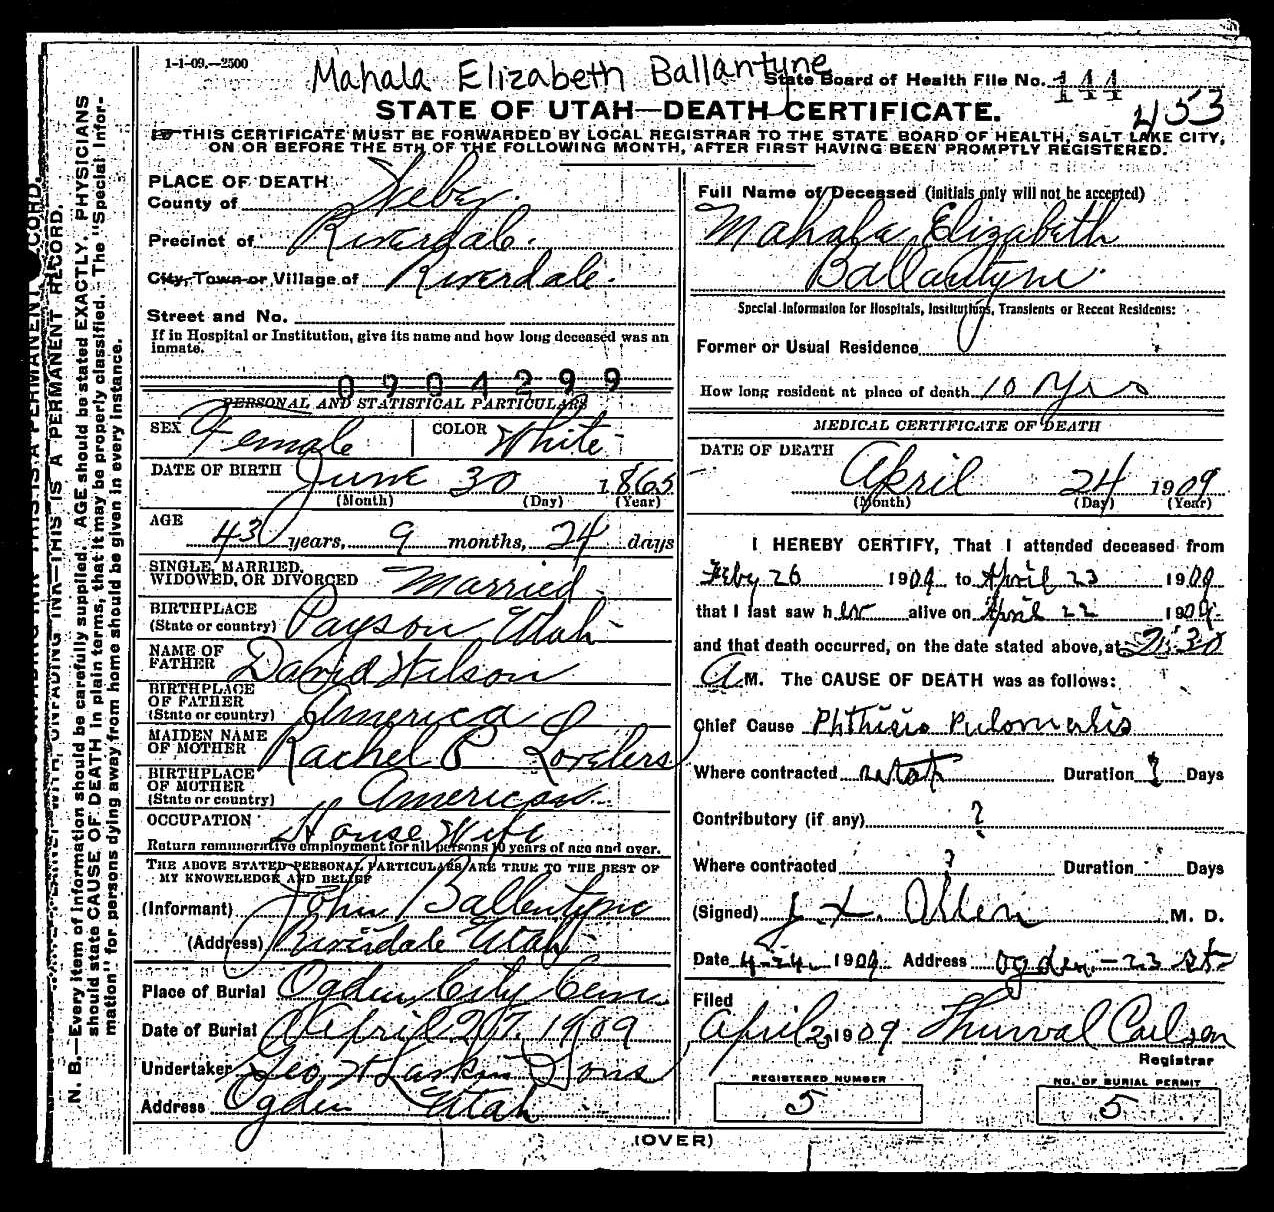 1-1-09.—2500
Mahala Elizabeth Ballantyne
State Board of Health File No. 144
453
STATE OF UTAH—DEATH CERTIFICATE.
THIS CERTIFICATE MUST BE FORWARDED BY LOCAL REGISTRAR TO THE STATE BOARD OF HEALTH, SALT LAKE CITY,
ON OR BEFORE THE 5TH OF THE FOLLOWING MONTH, AFTER FIRST HAVING BEEN PROMPTLY REGISTERED.
PLACE OF DEATH
County of Weber
Precinct of Riverdale
City, Town or Village of Riverdale
Street and No.
If in Hospital or Institution, give its name and how long deceased was an
inmate.
0904299
PERSONAL AND STATISTICAL PARTICULARS
SEX Female COLOR White
DATE OF BIRTH June 30 1865
(Month) (Day) (Year)
AGE
43 years, 9 months, 24 days
SINGLE, MARRIED,
WIDOWED, OR DIVORCED Married
BIRTHPLACE
(State or country) Payson Utah
NAME OF
FATHER David Wilson
BIRTHPLACE
OF FATHER
(State or country) America
MAIDEN NAME
OF MOTHER Rachel P
BIRTHPLACE
OF MOTHER
(State or country) American
OCCUPATION House Wife
Return remunerative employment for all persons 10 years of age and over.
THE ABOVE STATED PERSONAL PARTICULARS ARE TRUE TO THE BEST OF
MY KNOWELEDGE AND BELIEF
(Informant) John Ballentyne
(Address) Riverdale Utah
Place of Burial Ogden City Cem
Date of Burial April 27, 1909
Undertaker Geo W Larkin & Sons
Address Ogden Utah
Full Name of Deceased (initials only will not be accepted)
Mahala Elizabeth
Ballantyne
Special Information for Hospitals, Institutions, Transients or Recent Residents:
Former or Usual Residence
How long resident at place of death 10 Yrs
MEDICAL CERTIFICATE OF DEATH
DATE OF DEATH
April 24 1909
(Month) (Day) (Year)
I HEREBY CERTIFY, That I attended deceased from
Feby 26 1909 to April 23 1909
that I last saw her alive on April 22 1909
and that death occurred, on the date stated above, at 2:30
A M. The CAUSE OF DEATH was as follows:
Chief Cause Phthisis Pulomalis
Where contracted Utah Duration ? Days
Contributory (if any) ?
Where contracted ? Duration Days
(Signed) Allen M. D.
Date 4-24 1909 Address Ogden - 23 St
Filed
April 1909 Thurval Carlsen
Registrar
REGISTERED NUMBER
5
NO. OF BURIAL PERMIT
5
(OVER)
THIS IS A PERMANENT RECORD.
UNFADING INK—THIS IS A PERMANENT RECORD.
N. B.—Every item of information should be carefully supplied. AGE should be stated EXACTLY. PHYSICIANS
should state CAUSE OF DEATH in plain terms, that it may be properly classified. The "Special Infor-
mation" for persons dying away from home should be given in every instance.